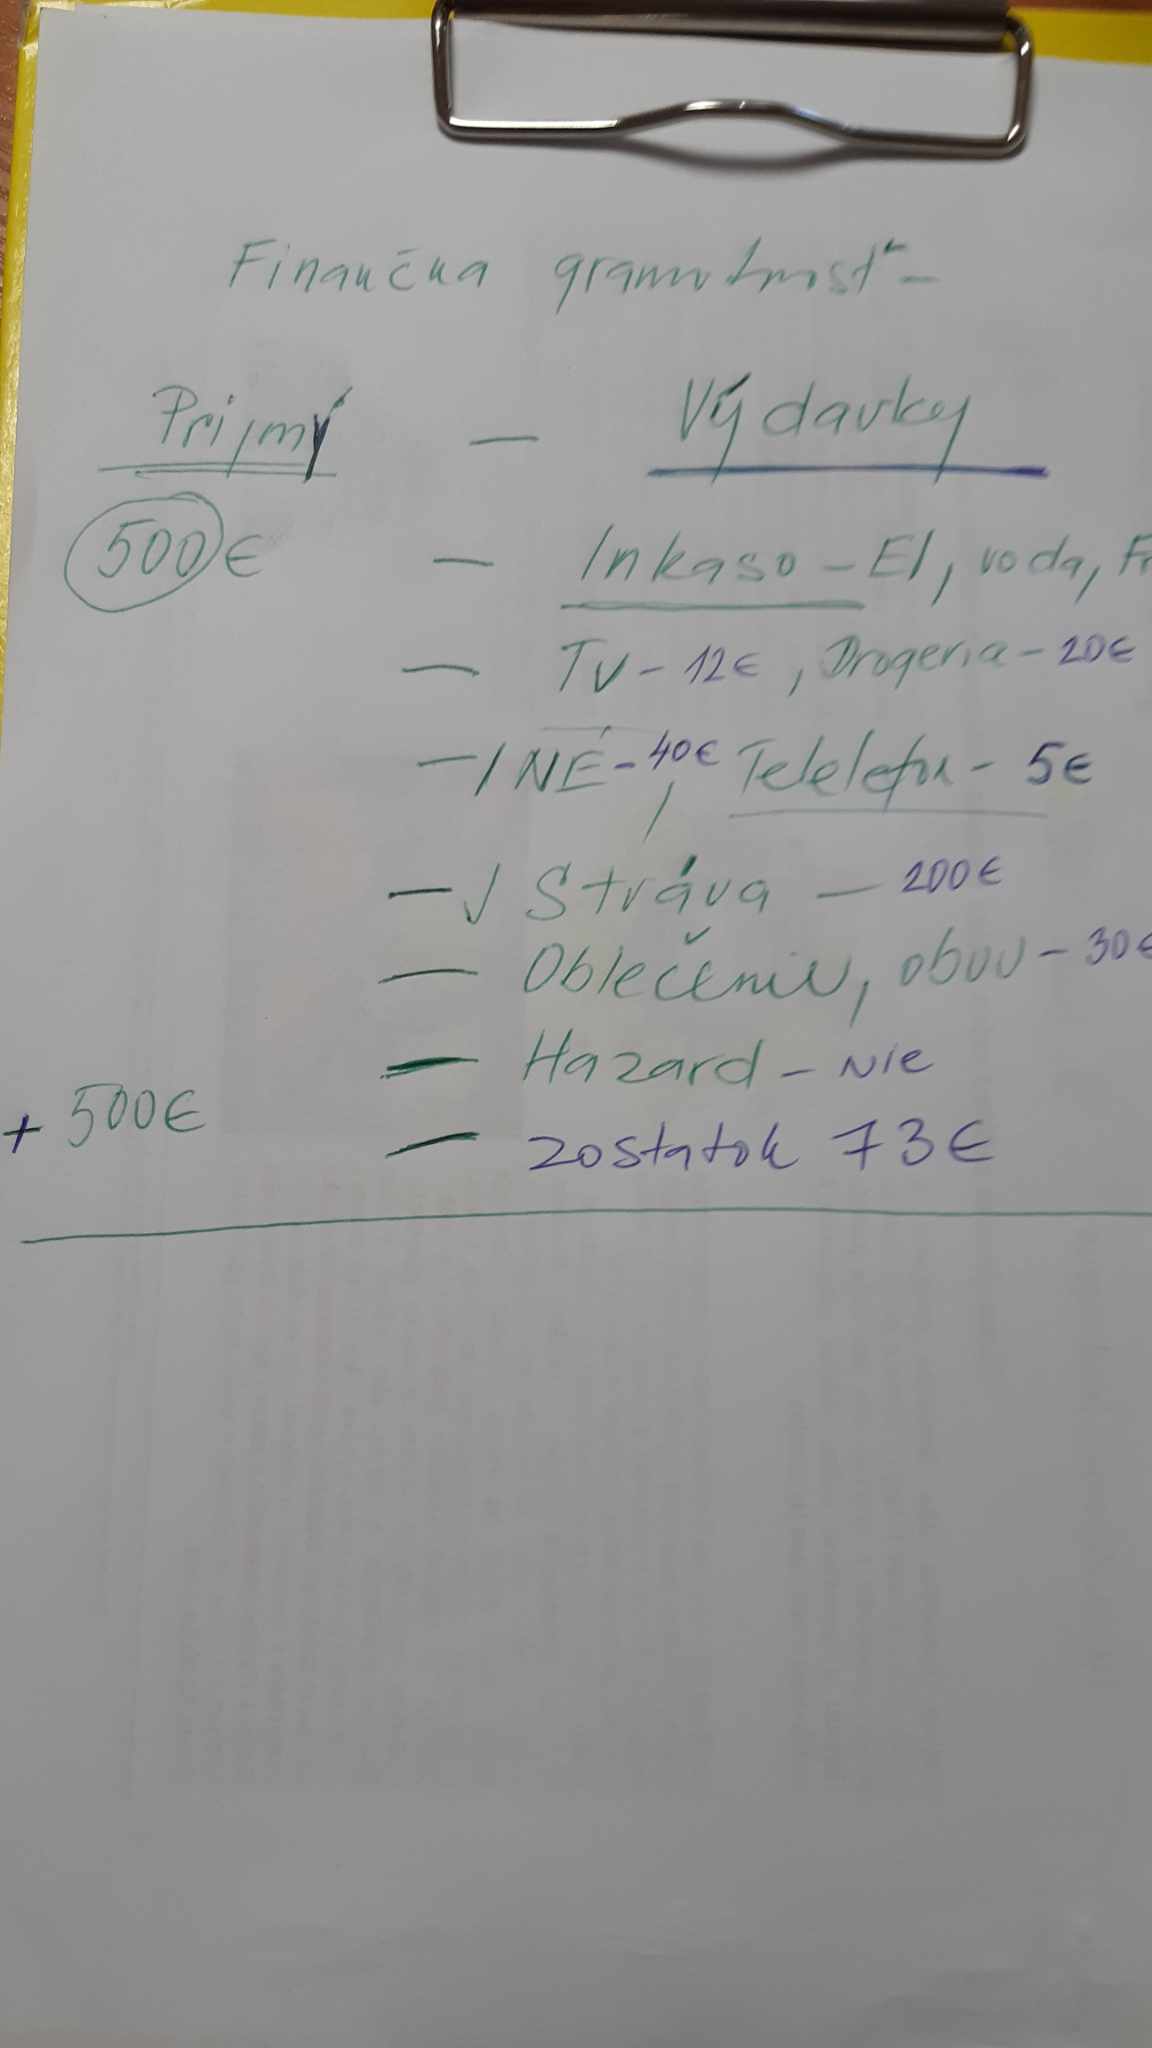 Finančna gramotnosť -
Prijmý - Výdavky
500€ - Inkaso - El, voda,
- TV - 12€, Drogeria - 20€
- INÉ - 40€, Telelefon - 5€
- √ Stráva - 200€
- Oblečenie, obuv - 30€
- Hazard - Nie
+ 500€ - zostatok 73€